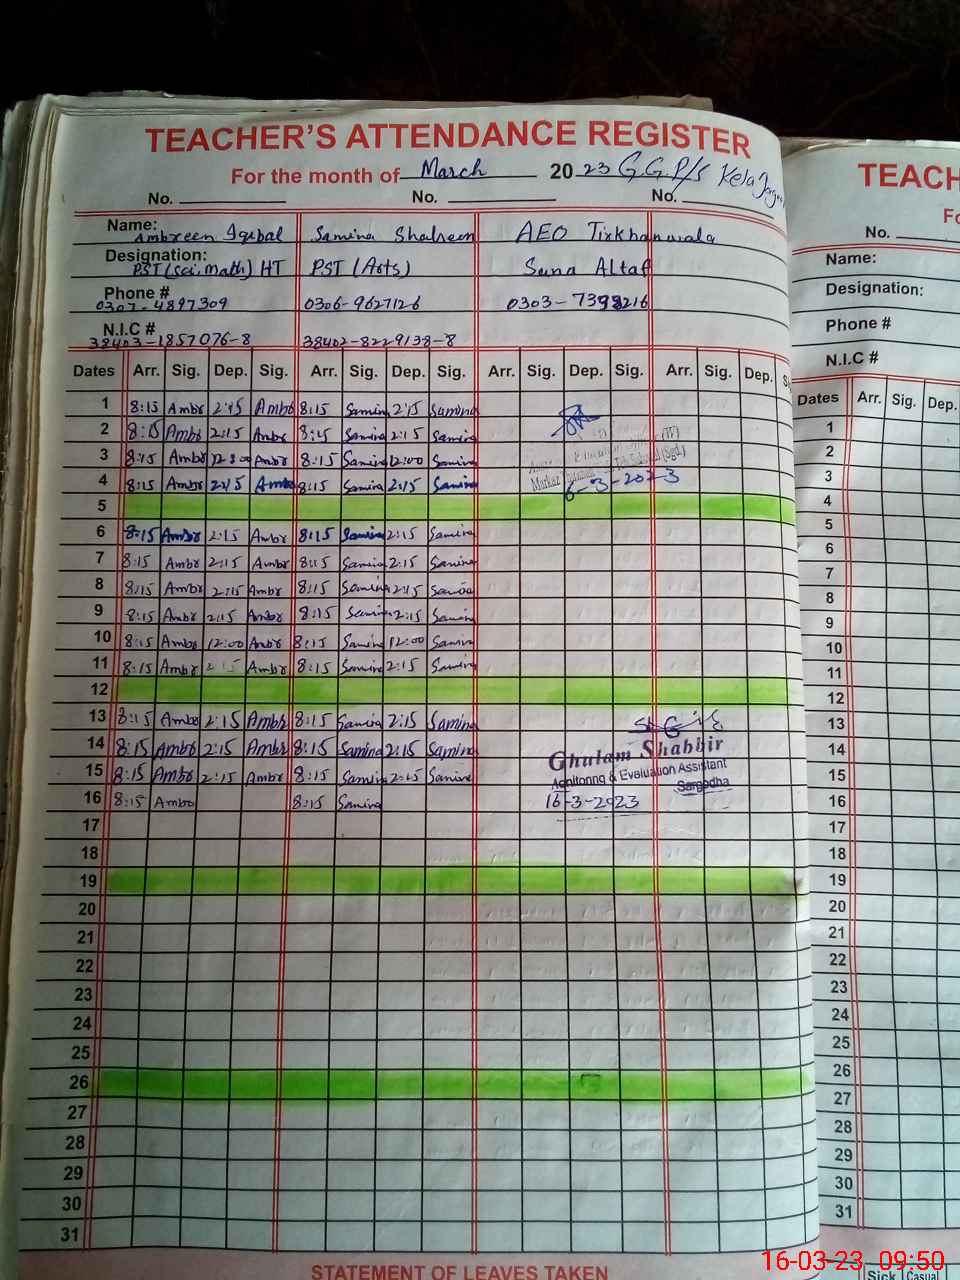 TEACHER'S ATTENDANCE REGISTER
For the month of March 2023 G.G.P/S Kela
No. No. No.
Name: Ambreen Iqbal Samina Shaheen AEO Tirkhanwala
Designation: PST (Sci, Math) HT PST (Arts) Sana Altaf
Phone # 0307-4897309 0306-9627126 0303-7398216
N.I.C # 38403-1857076-8 38402-8229138-8
Dates Arr. Sig. Dep. Sig. Arr. Sig. Dep. Sig. Arr. Sig. Dep. Sig. Arr. Sig. Dep.
1 8:15 Ambr 2:15 Ambr 8:15 Samina 2:15 Samina
2 8:15 Ambr 2:15 Ambr 8:15 Samina 2:15 Samina
3 8:15 Ambr 12:00 Ambr 8:15 Samina 12:00 Samina
4 8:15 Ambr 2:15 Ambr 8:15 Samina 2:15 Samina 6-3-2023
5
6 8:15 Ambr 2:15 Ambr 8:15 Samina 2:15 Samina
7 8:15 Ambr 2:15 Ambr 8:15 Samina 2:15 Samina
8 8:15 Ambr 2:15 Ambr 8:15 Samina 2:15 Samina
9 8:15 Ambr 2:15 Ambr 8:15 Samina 2:15 Samina
10 8:15 Ambr 12:00 Ambr 8:15 Samina 12:00 Samina
11 8:15 Ambr 2:15 Ambr 8:15 Samina 2:15 Samina
12
13 8:15 Ambr 2:15 Ambr 8:15 Samina 2:15 Samina
14 8:15 Ambr 2:15 Ambr 8:15 Samina 2:15 Samina Ghulam Shabbir
15 8:15 Ambr 2:15 Ambr 8:15 Samina 2:15 Samina Monitoring & Evaluation Assistant
Sargodha
16 8:15 Ambr 8:15 Samina 16-3-2023
17
18
19
20
21
22
23
24
25
26
27
28
29
30
31
STATEMENT OF LEAVES TAKEN
TEACH
Fo
No.
Name:
Designation:
Phone #
N.I.C #
Dates Arr. Sig. Dep.
1
2
3
4
5
6
7
8
9
10
11
12
13
14
15
16
17
18
19
20
21
22
23
24
25
26
27
28
29
30
31
Sick Casual
16-03-23 09:50